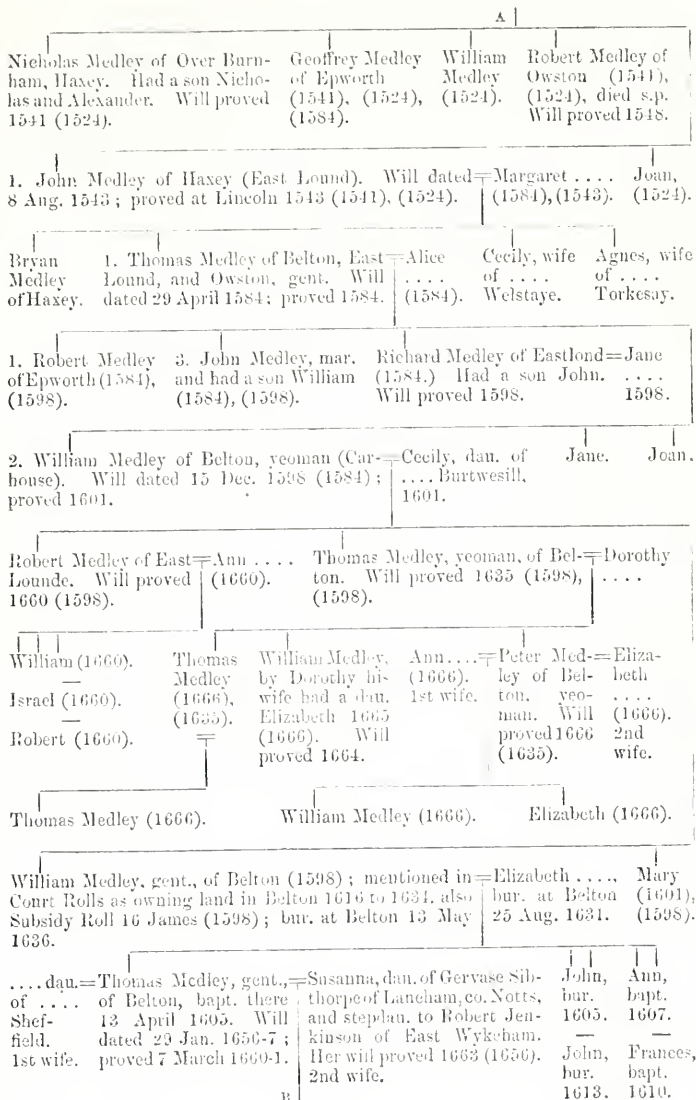 A
Nicholas Medley of Over Burn-
ham, Haxey. Had a son Nicho-
las and Alexander. Will proved
1541 (1524).
Geoffrey Medley
of Epworth
(1541), (1524),
(1584).
William
Medley
(1524).
Robert Medley of
Owston (1541),
(1524), died s.p.
Will proved 1548.
1. John Medley of Haxey (East Lound). Will dated
8 Aug. 1543 ; proved at Lincoln 1543 (1541), (1524).
Margaret ....
(1584), (1543).
Joan,
(1524).
Bryan
Medley
of Haxey.
1. Thomas Medley of Belton, East
Lound, and Owston, gent. Will
dated 29 April 1584; proved 1584.
Alice
....
(1584).
Cecily, wife
of ....
Welstaye.
Agnes, wife
of ....
Torkesay.
1. Robert Medley
of Epworth (1584),
(1598).
3. John Medley, mar.
and had a son William
(1584), (1598).
Richard Medley of Eastlond=Jane
(1584.) Had a son John. ....
Will proved 1598. 1598.
2. William Medley of Belton, yeoman (Car-
house). Will dated 15 Dec. 1598 (1584) ;
proved 1601.
Cecily, dau. of
.... Burtwesill,
1601.
Jane.
Joan.
Robert Medley of East
Lounde. Will proved
1660 (1598).
Ann ....
(1660).
Thomas Medley, yeoman, of Bel-
ton. Will proved 1635 (1598),
(1598).
Dorothy
....
William (1660).
—
Israel (1660).
—
Robert (1660).
Thomas
Medley
(1666),
(1635).
William Medley,
by Dorothy his
wife had a dau.
Elizabeth 1665
(1666). Will
proved 1664.
Ann....
(1666).
1st wife.
Peter Med-
ley of Bel-
ton, yeo-
man. Will
proved 1666
(1635).
Eliza-
beth
....
(1666).
2nd
wife.
Thomas Medley (1666).
William Medley (1666).
Elizabeth (1666).
William Medley, gent., of Belton (1598) ; mentioned in
Court Rolls as owning land in Belton 1616 to 1634, also
Subsidy Roll 16 James (1598) ; bur. at Belton 13 May
1636.
Elizabeth ....,
bur. at Belton
25 Aug. 1631.
Mary
(1601),
(1598).
....dau.
of ....
Shef-
field.
1st wife.
Thomas Medley, gent.,
of Belton, bapt. there
13 April 1605. Will
dated 29 Jan. 1656-7 ;
proved 7 March 1660-1.
Susanna, dau. of Gervase Sib-
thorpe of Laneham, co. Notts,
and stepdau. to Robert Jen-
kinson of East Wykeham.
Her will proved 1663 (1656).
2nd wife.
John,
bur.
1605.
—
John,
bur.
1613.
Ann,
bapt.
1607.
—
Frances,
bapt.
1610.
B